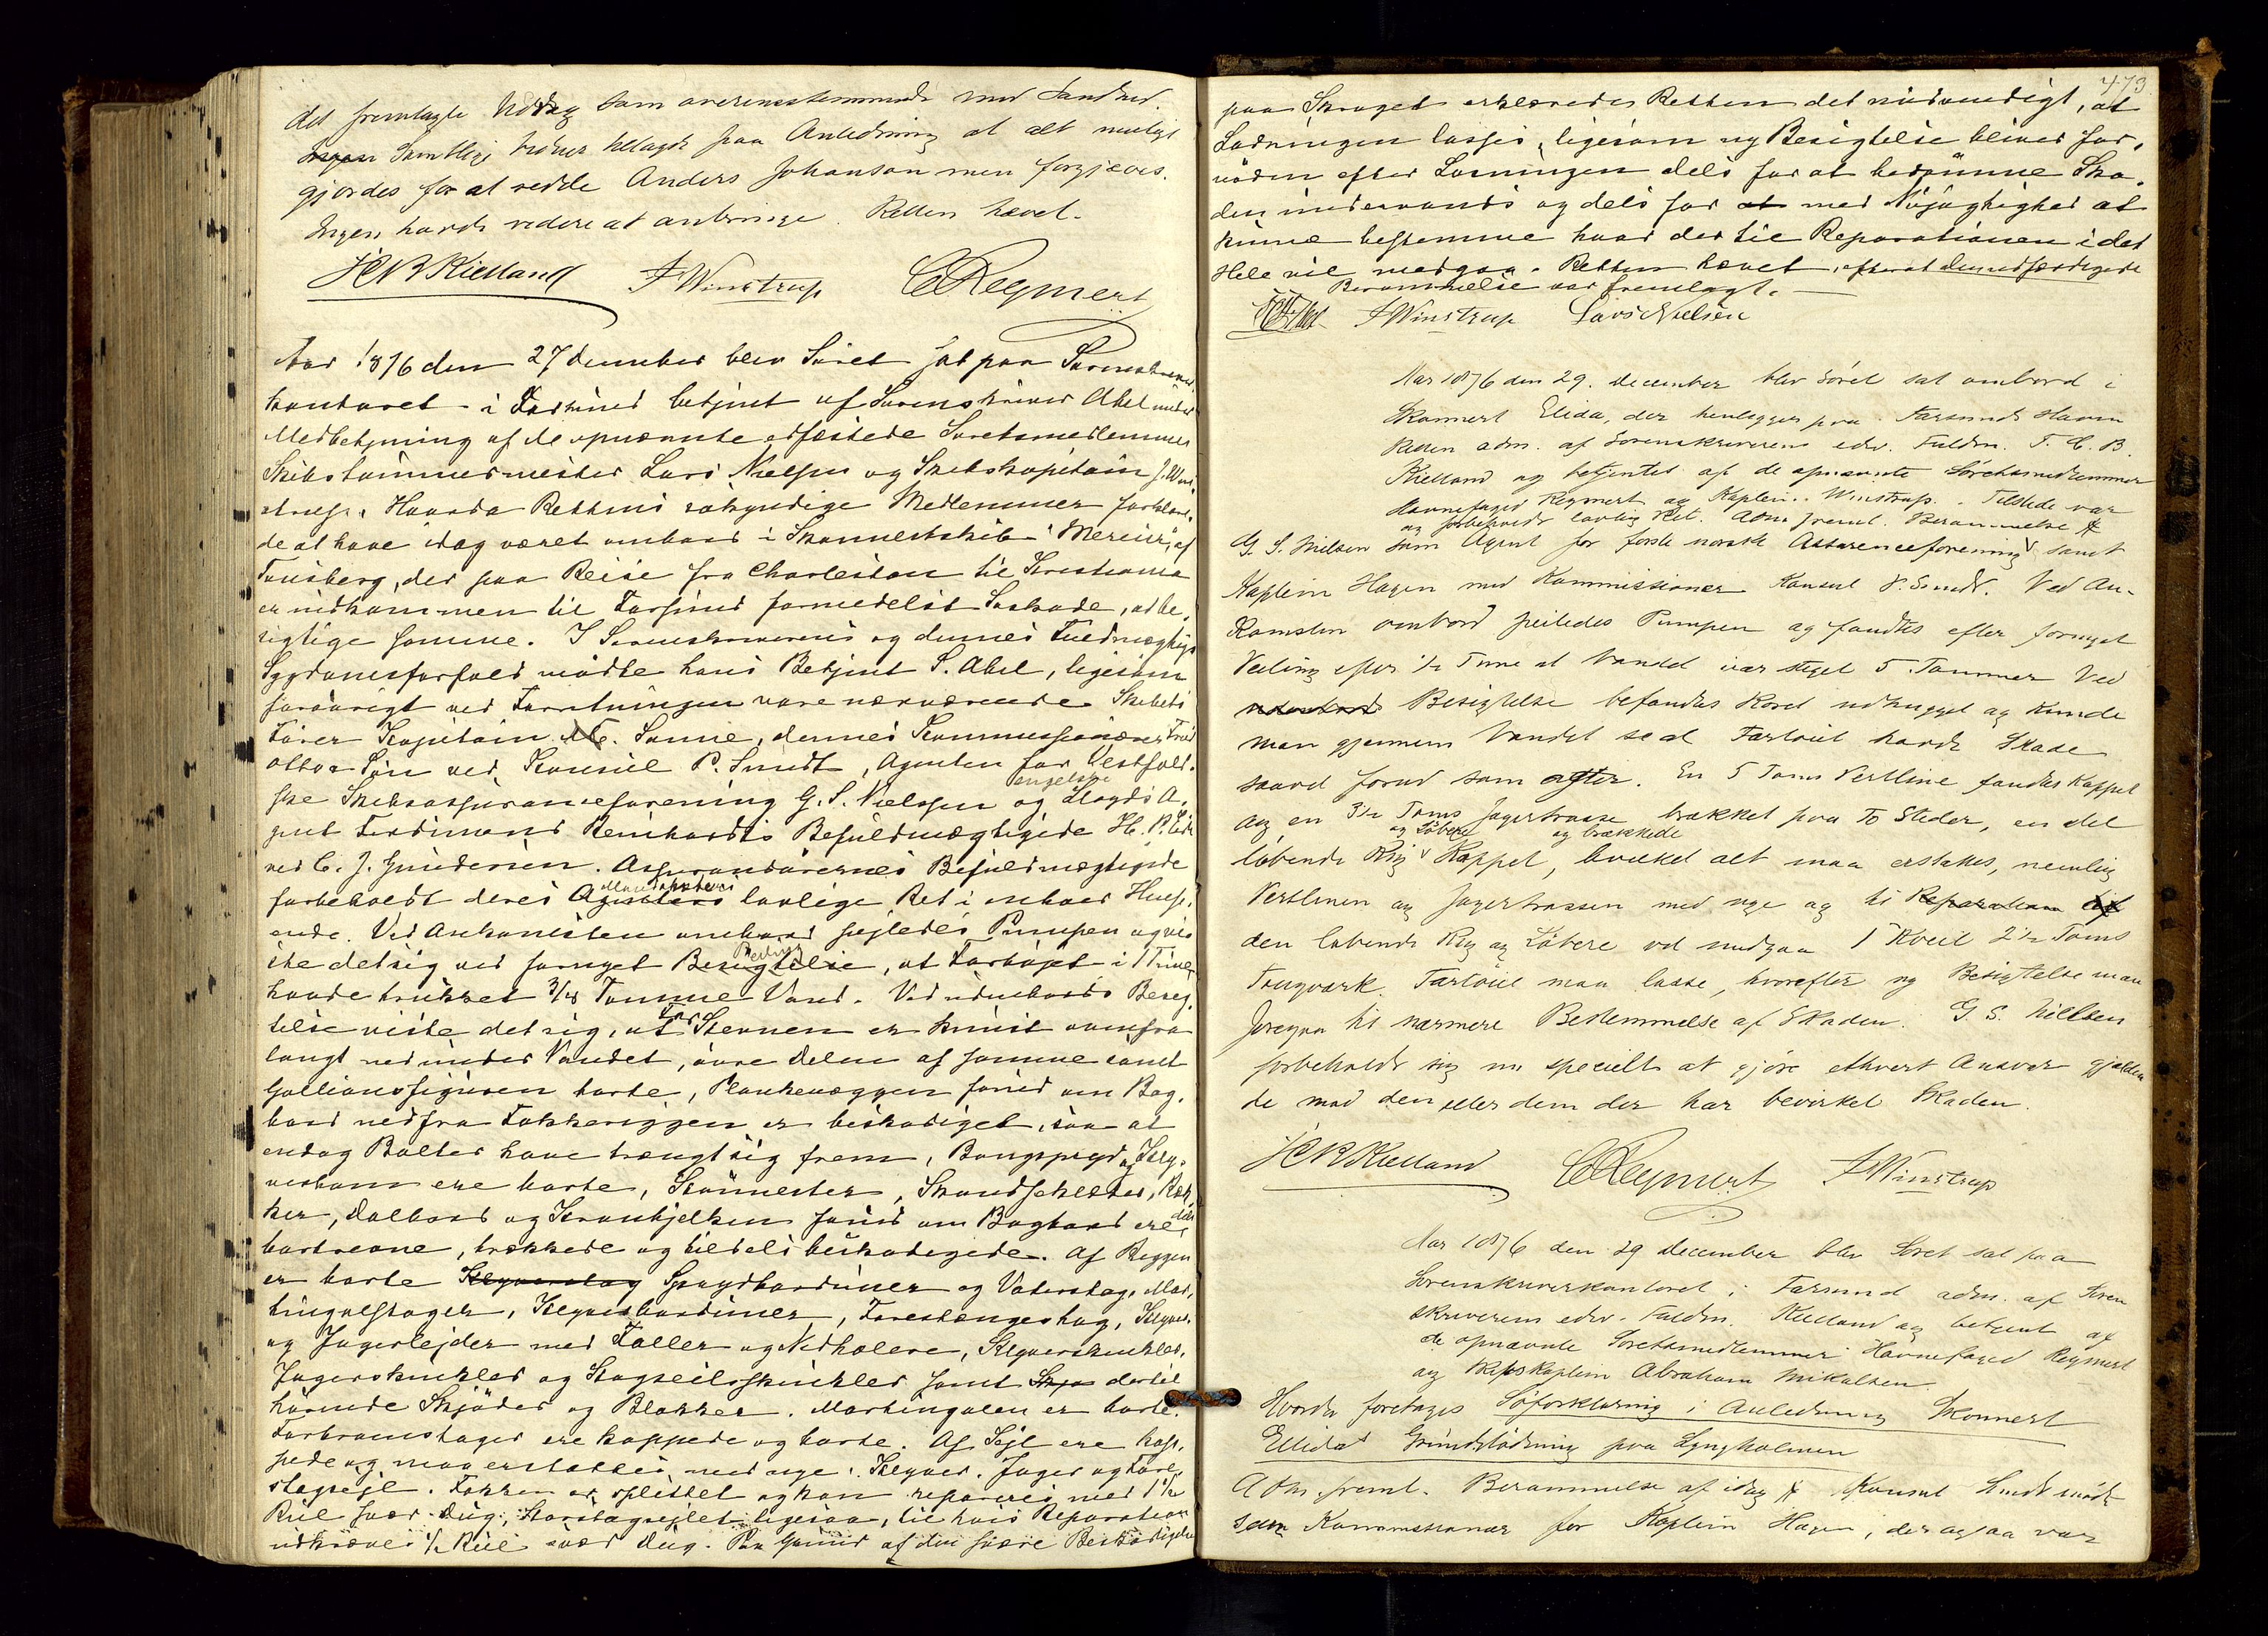 det fremlagte Uddrag som overensstemmende med Sandhed.
Samtlige Vidner tillagde paa Anledning at alt muligt
gjordes for at redde Anders Johanson men forgjæves.
Ingen havde videre at anbringe. Retten hævet.
HCB Kielland J Winstrup C Reymert
Aar 1876 den 27 December blev Søret sat paa Sorenskriver
kontoret i Farsund betjent af Sorenskriver Abel under
Medbetjening af de opnævnte edfæstede Søretsmedlemmer
Skibstømmermester Lars Nielsen og Skibskapitain J. Win
strup. Hvorda Rettens søkyndige Medlemmer forklare
de at have idag været ombord i Skonnertskib "Mercur" af
Tønsberg, der paa Reise fra Charleston til Kristiania
er indkommen til Farsund formedelst Søskade, at be
sigtige samme. I Sorenskriverens og dennes Fuldmægtigs
Sygdomsforfald mødte hans Betjent S. Abel, ligesom
forøvrigt ved Forretningen vare nærværende Skibets
Fører Kapitain Sønne, dennes Kommissionærer
Otto & Søn ved Konsul P. Sundt, Agenten for Vestfold
ske Skibsassuranceforening G. S. Nielsen og engelske Lloyds A
gent Ferdinand Reinhardts Befuldmægtigede
ved C. J. Gundersen. Assurandørernes Befuldmægtigede
forbeholdt deres Mandanters lovlige Ret i enhver Hense
ende. Ved Ankomsten ombord pejledes Pumpen og vis
te det sig ved fornyet Peiling, at Fartøjet i 1 Time
havde trukket 3/4 Tomme Vand. Ved udenbords Besig
telse viste det sig, at For Stevnen er knust ovenfra
langt ned under Vandet, øvre Delen af samme samt
Gallionsfiguren borte, Plankevæggen forud om Bag
bord ned fra Fokkeriggen er beskadiget, saa at
endog Bolter have trængt sig frem, Bougspryd og Klyv
erbom ere borte, Støtter, Skandseklædning, Ræk
ker, Dolbord og Kranbjelken forud om Bagbord ere dels
bortrevne, brækkede og tildels beskadigede. Af Riggen
er borte Sprydbarduner og Vaterstag, Mar
tingalstager, Klyverbarduner, Forestængestag, Klyver
og Jagerlejder med Faller og Nedhalere, Klyverskinkler,
Jagerskinkler og Stagseilsskinkler samt dertil
hørende Skjøder og Blokker. Martingalen er borte.
Forbramstager ere kappede og borte. Af Sejl ere kap
pede og maa erstattes med nye: Klyver, Jager og Fore
stagsejl. Fokken er splittet og kan repareres med 1 1/2
Rul svær Dug; Storstagsejlet ligesaa, til hvis Reparation
udkræves 1/2 Rul svær Dug. Paa Grund af den svære Beskadigelse
473
paa Skroget erklæredes Retten det nødvendigt, at
Ladningen losses, ligesom ny Besigtelse bliver for
nøden efter Losningen dels for at bedømme Ska
den undervands og dels for med Nøjagtighed at
kunne bestemme hvad der til Reparationen i det
Hele vil medgaa. Retten hævet, efterat den udfærdigede
Berammelse var fremlagt.
J Winstrup Lars Nielsen
Aar 1876 den 29. December blev Søret sat ombord i
Skonnert Elida, der henligger paa Farsunds Havn
Retten adm. af Sorenskriverens edsv. Fuldm. F. C. B.
Kielland og betjentes af de opnævnte Søretsmedlemmer
Havnefoged Reymert og Kaptein Winstrup. Tilstede var
og forbeholdt lovlig Ret. Adm. freml. Berammelse
G. S. Nielsen som Agent for første norske Assuranceforening samt
Kaptein Hagen med Kommissionær Konsul P. Sundt. Ved An-
komsten ombord peiledes Pumpen og fandtes efter fornyet
Peiling efter 1/2 Time at Vandet var steget 5 Tommer Ved
Besigtelse befandtes Roret udhugget og kunde
man gjennem Vandet se at Fartøiet havde Skade
saavel forud som agter. En 5 Toms Vertline fandtes kappet
og en 3 1/2 Toms Jagertrosse brækket paa to Steder, en del
løbende Rig og Løbere kappet og brækkede, hvilket alt maa erstattes, nemlig
Vertlinen og Jagertrossen med nye og til
den løbende Rig og Løbere vil medgaa 1 Kveil 2 1/2 Toms
Tougværk. Fartøiet maa losse, hvorefter ny Besigtelse maa
foregaa til nærmere Bestemmelse af Skaden. G. S. Nielsen
forbeholdt sig nu specielt at gjøre ethvert Ansvar gjælden
de mod den eller dem der har bevirket Skaden.
HCB Kielland C Reymert J Winstrup
Aar 1876 den 29 December blev Søret sat paa
Sorenskriverkontoret i Farsund adm. af Soren
skriverens edsv. Fuldm. Kielland og betjent af
de opnævnte Søretsmedlemmer Havnefoged Reymert
og Skibskaptein Abraham Mikalsen.
Hvorda foretages Søforklaring i Anledning Skonnert
Elidas Grundstødning paa Lyngholmen
Adm. freml. Berammelse af idag Konsul Sundt mødte
som Kommissionær for Kaptein Hagen, der ogsaa var